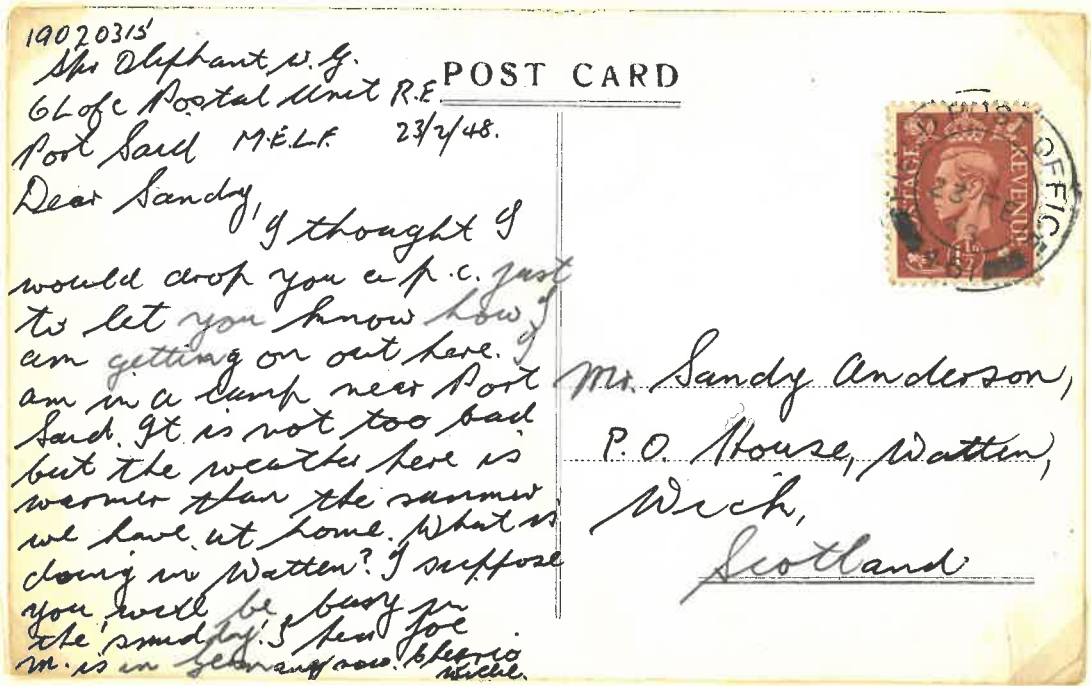 19020315
Spr Oliphant W.G.
6 L of C Postal Unit R.E.
Port Said M.E.L.F. 23/2/48.
Dear Sandy,
I thought I
would drop you a p.c. just
to let you know how I
am getting on out here. I
am in a camp near Port
Said. It is not too bad
but the weather here is
warmer than the summer
we have at home. What is
doing in Watten? I suppose
you will be busy in
the 'smiddy'. I hear Joe
M. is in Germany now. Cheerio
Willie.
POST CARD
POSTAGE REVENUE
1½D
POST OFFICE
23 FE
Mr. Sandy Anderson,
P.O. House, Watten,
Wick,
Scotland